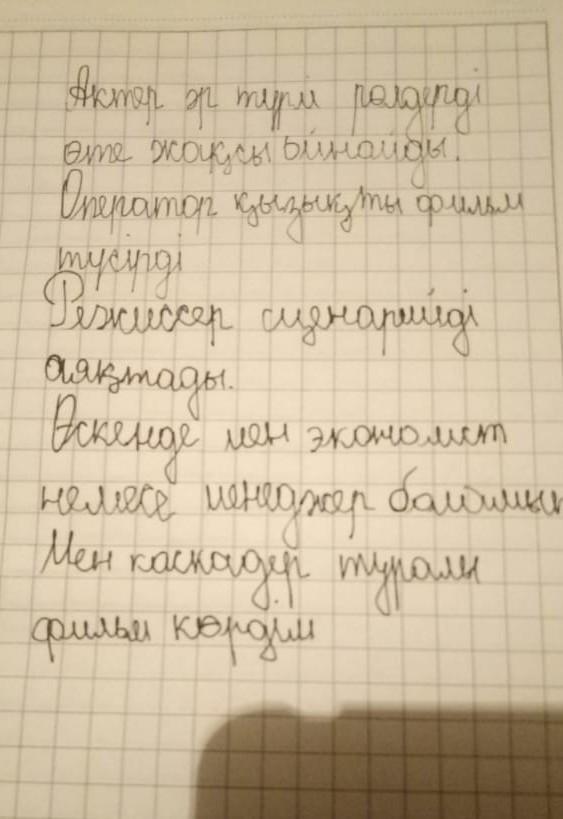 Актер әр түрлі рөлдерді
өте жақсы ойнайды.
Оператор қызықты фильм
түсірді
Режиссер сценарийді
аяқтады.
Өскенде мен экономист
немесе менеджер боламын
Мен каскадер туралы
фильм көрдім